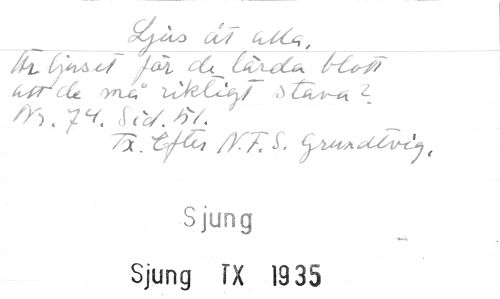 Ljus åt alla.
Är ljuset för de lärda blott
att de må riktigt stava?
Nr. 74. Sid. 51.
Tx. Efter N.F.S. Grundtvig.
Sjung
Sjung TX 1935